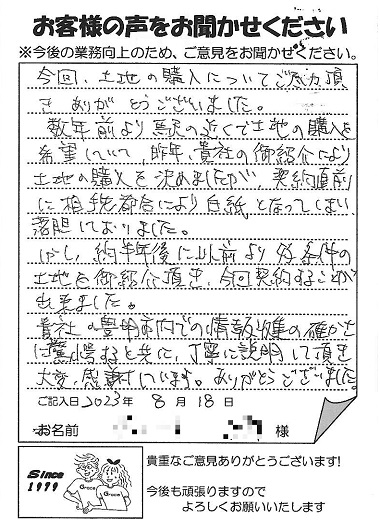 お客様の声をお聞かせください
※今後の業務向上のため、ご意見をお聞かせください。
今回、土地の購入についてご尽力頂
きありがとうございました。
数年前より駅の近くで土地の購入を
希望していて、昨年、貴社の御紹介により
土地の購入を決めましたが、契約直前
に相手都合により白紙となってしまい
落胆しておりました。
しかし、約半年後に以前より好条件の
土地を御紹介頂き、今回契約することが
出来ました。
貴社の豊明市内での情報収集の確かさ
に驚愕すると共に、丁寧に説明して頂き
大変、感謝しています。ありがとうございました。
ご記入日 2023年 8月 18日
お名前 様
Since
1979
Grace
Grace
貴重なご意見ありがとうございます!
今後も頑張りますので
よろしくお願いいたします